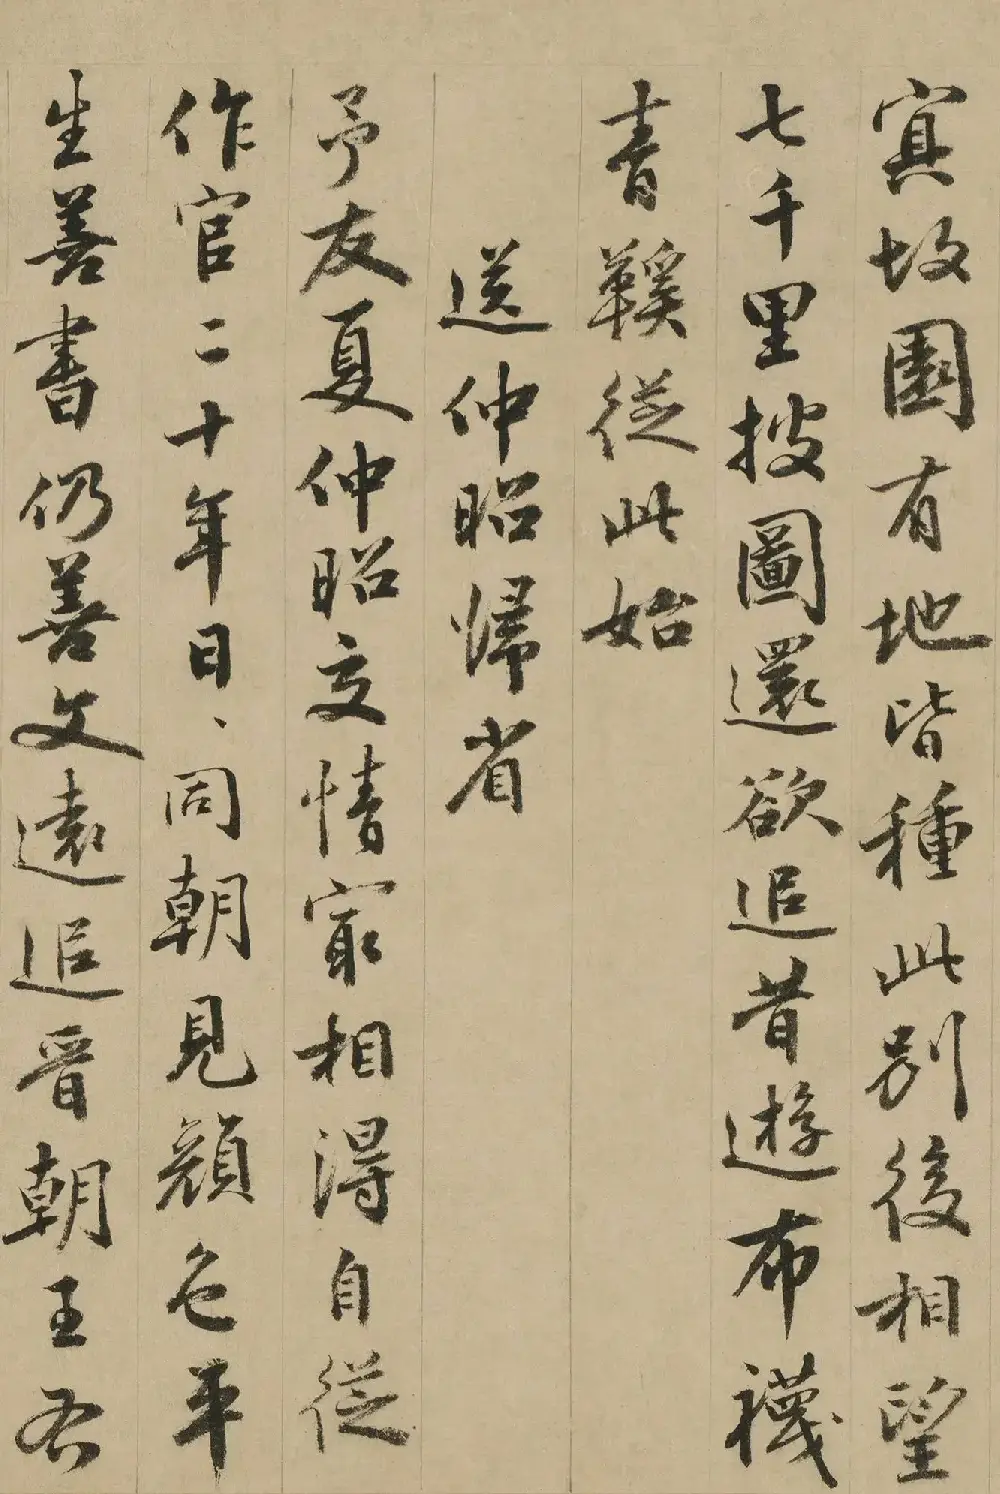 寘故園有地皆種此別後相望
七千里披圖還欲追昔遊布襪
青鞵從此始
送仲昭歸省
予友夏仲昭交情冣相得自從
作官二十年日、同朝見顏色平
生善書仍善文遠追晉朝王右